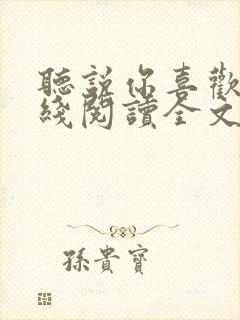 聽說你喜歡
綫閱讀全文
孫貴寶